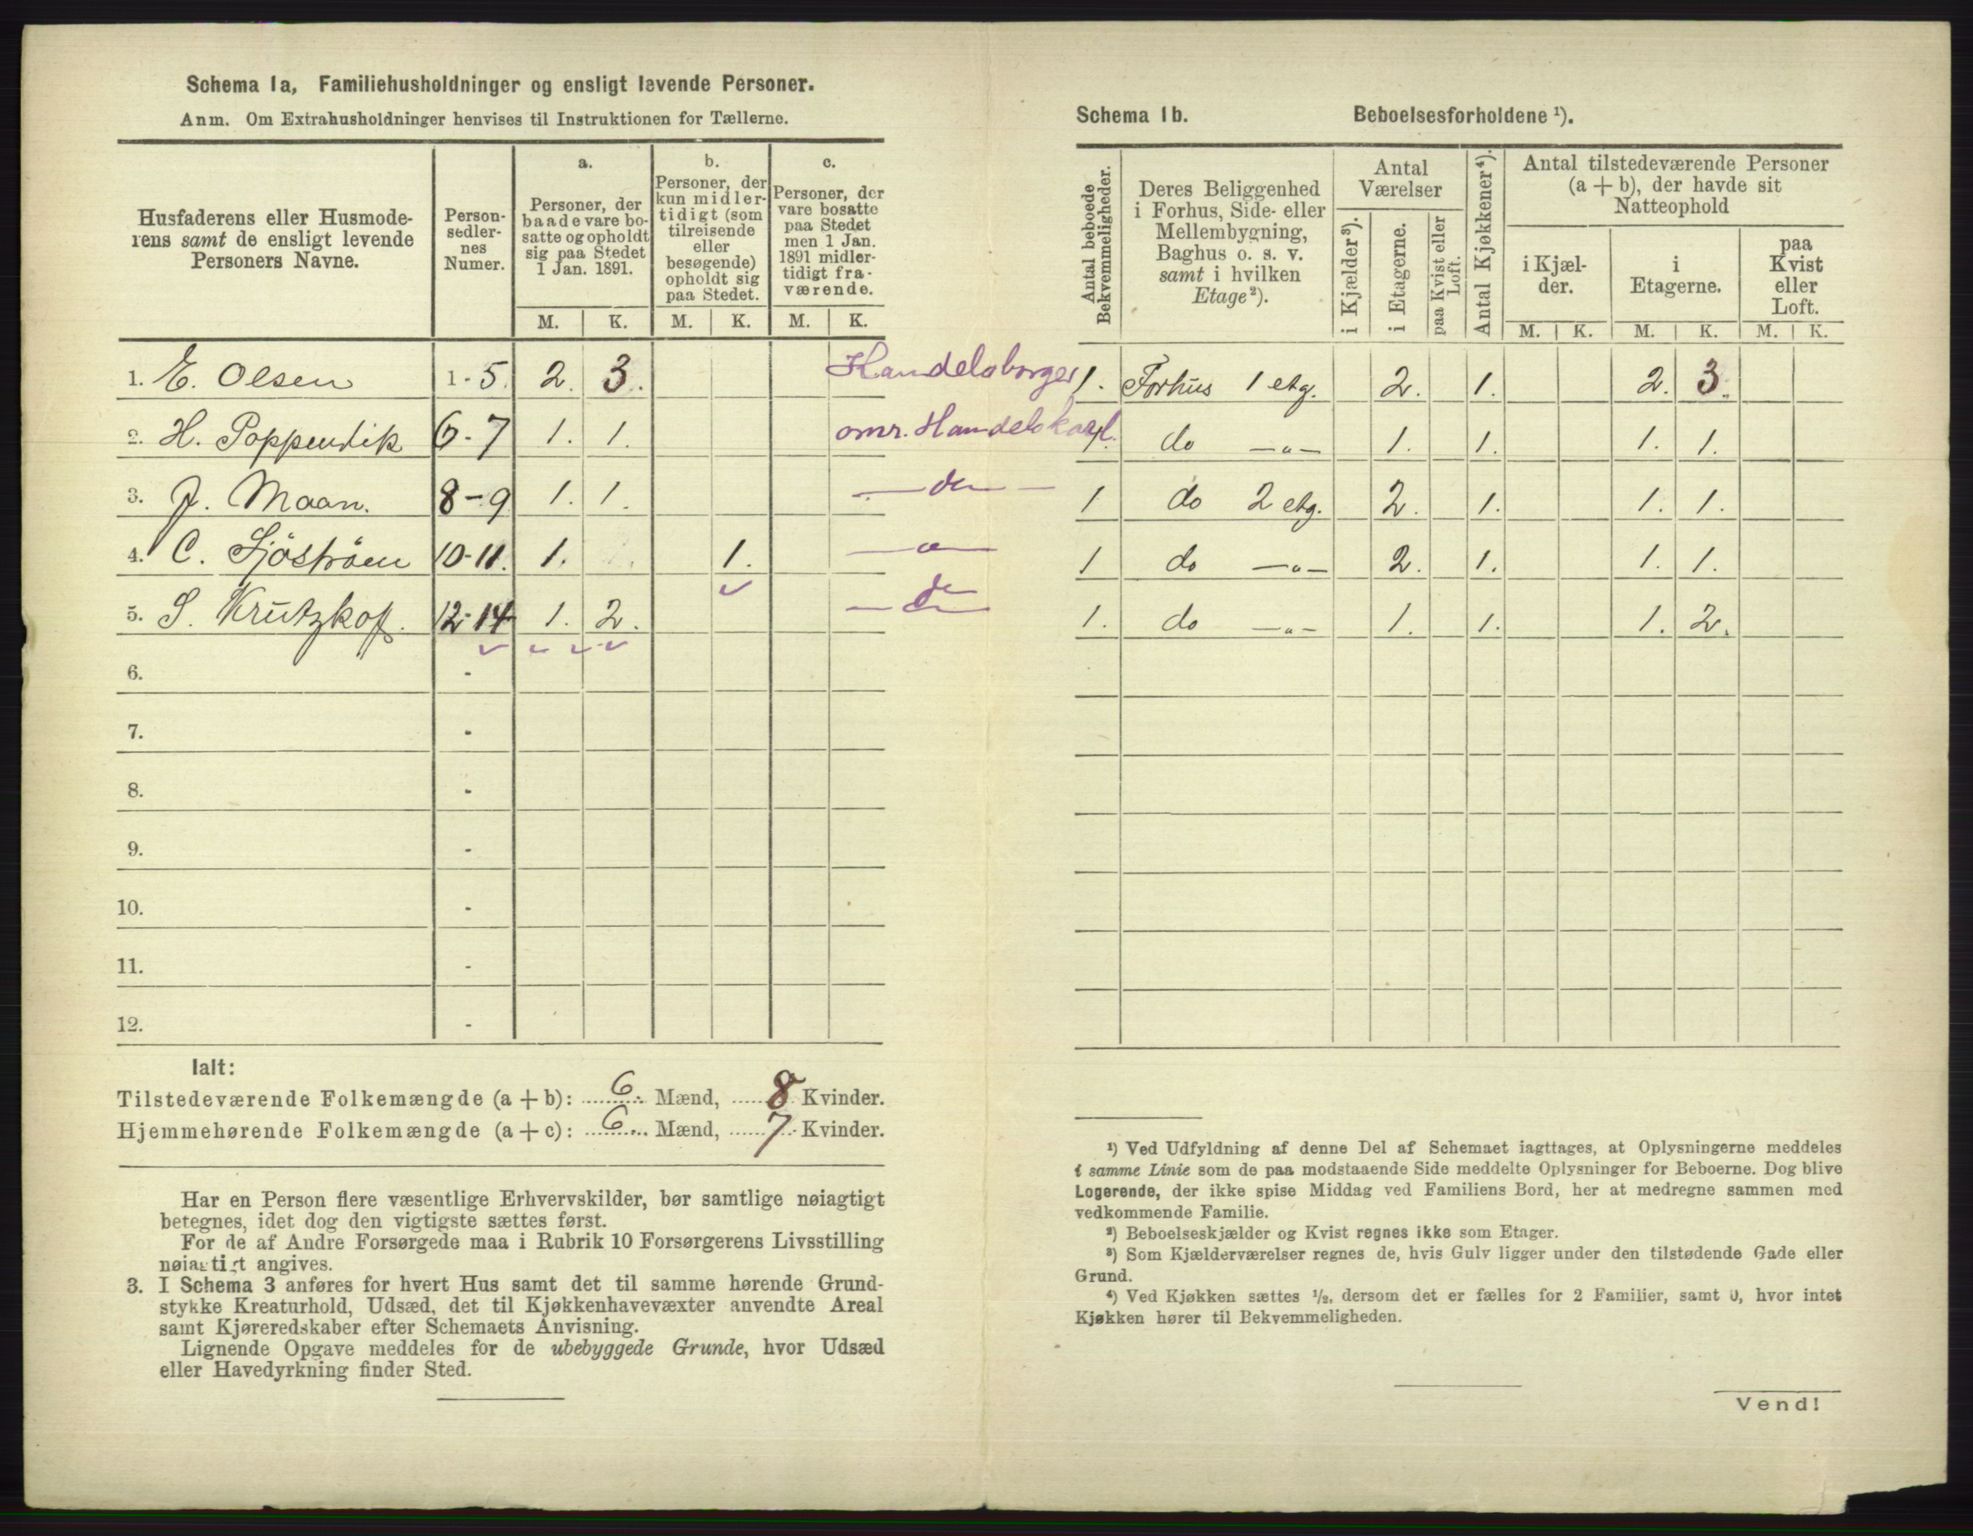 Schema 1a, Familiehusholdninger og ensligt levende Personer.
Anm. Om Extrahusholdninger henvises til Instruktionen for Tællerne.
Husfaderens eller Husmode-
rens samt de ensligt levende
Personers Navne.
Person-
sedler-
nes
Numer.
a.
Personer, der
baade vare bo-
satte og opholdt
sig paa Stedet
1 Jan. 1891.
b.
Personer, der
kun midler-
tidigt (som
tilreisende
eller
besøgende)
opholdt sig
paa Stedet.
c.
Personer, der
vare bosatte
paa Stedet
men 1 Jan.
1891 midler-
tidigt fra-
værende.
M. K. M. K. M. K.
1. E. Olsen 1-5. 2. 3. Handelsborger
2. H. Poppendik 6-7 1. 1. omr. Handelskarl.
3. J. Maan. 8-9 1. 1. — do —
4. C. Sjöström 10-11. 1. 1.
5. S. Krutzkof. 12-14 1. 2. do
6. -
7. -
8. -
9. -
10. -
11. -
12. -
Ialt:
Tilstedeværende Folkemængde (a + b): 6. Mænd, 8 Kvinder.
Hjemmehørende Folkemængde (a + c): 6. Mænd, 7 Kvinder.
Har en Person flere væsentlige Erhvervskilder, bør samtlige nøiagtigt
betegnes, idet dog den vigtigste sættes først.
For de af Andre Forsørgede maa i Rubrik 10 Forsørgerens Livsstilling
nøiagtigt angives.
3. I Schema 3 anføres for hvert Hus samt det til samme hørende Grund-
stykke Kreaturhold, Udsæd, det til Kjøkkenhavevæxter anvendte Areal
samt Kjøreredskaber efter Schemaets Anvisning.
Lignende Opgave meddeles for de ubebyggede Grunde, hvor Udsæd
eller Havedyrkning finder Sted.
Schema 1b. Beboelsesforholdene ¹).
Antal beboede
Bekvemmeligheder.
Deres Beliggenhed
i Forhus, Side- eller
Mellembygning,
Baghus o. s. v.
samt i hvilken
Etage²).
Antal
Værelser
i Kjælder³).
i Etagerne.
paa Kvist eller
Loft.
Antal Kjøkkener⁴).
Antal tilstedeværende Personer
(a + b), der havde sit
Natteophold
i Kjæl-
der.
i
Etagerne.
paa
Kvist
eller
Loft.
M. K. M. K. M. K.
1. Forhus 1 etg. 2. 1. 2. 3.
1. do —„— 1. 1. 1. 1.
1 do 2 etg. 2. 1. 1. 1.
1 do —„— 2. 1. 1. 1.
1. do —„— 1. 1. 1. 2.
¹) Ved Udfyldning af denne Del af Schemaet iagttages, at Oplysningerne meddeles
i samme Linie som de paa modstaaende Side meddelte Oplysninger for Beboerne. Dog blive
Logerende, der ikke spise Middag ved Familiens Bord, her at medregne sammen med
vedkommende Familie.
²) Beboelseskjælder og Kvist regnes ikke som Etager.
³) Som Kjælderværelser regnes de, hvis Gulv ligger under den tilstødende Gade eller
Grund.
⁴) Ved Kjøkken sættes ½, dersom det er fælles for 2 Familier, samt 0, hvor intet
Kjøkken hører til Bekvemmeligheden.
Vend!